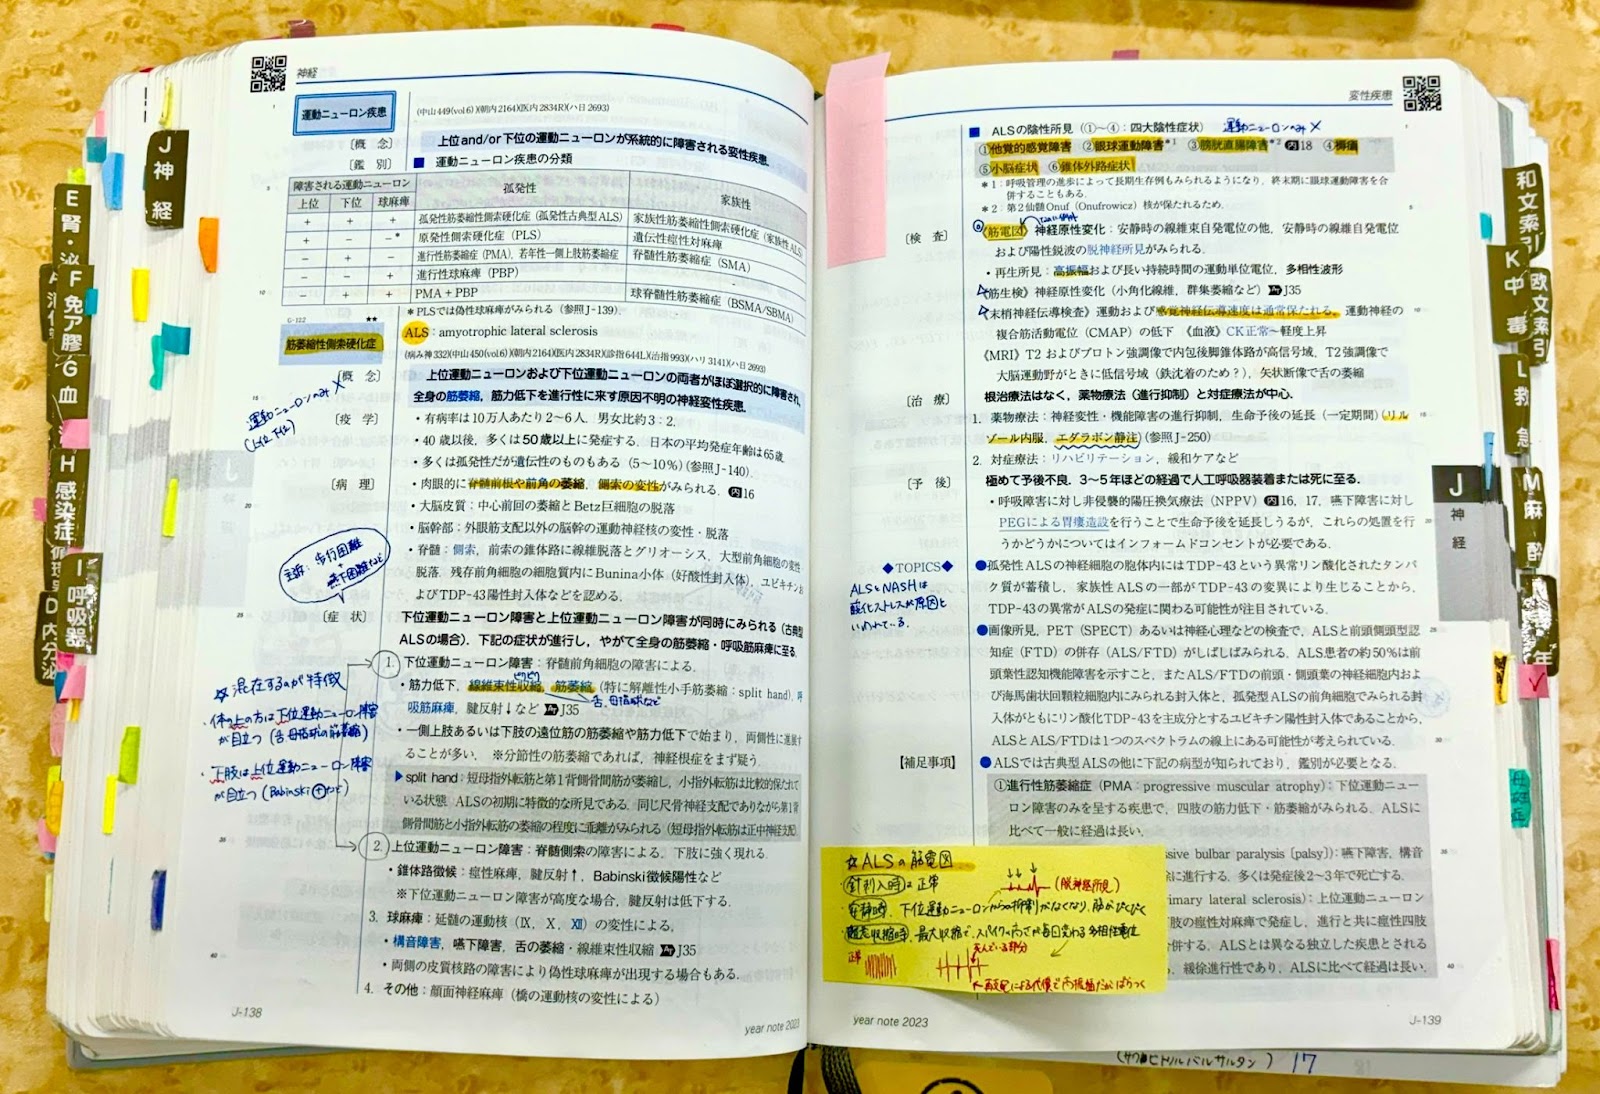 神経
運動ニューロン疾患
(中山449(vol6))(朝内2164)(医内2834R)(ハ日2693)
〔概 念〕
上位and/or下位の運動ニューロンが系統的に障害される変性疾患.
〔鑑 別〕
■ 運動ニューロン疾患の分類
障害される運動ニューロン 孤発性 家族性
上位 下位 球麻痺
+ + + 孤発性筋萎縮性側索硬化症(孤発性古典型ALS) 家族性筋萎縮性側索硬化症(家族性ALS)
+ − −* 原発性側索硬化症(PLS) 遺伝性痙性対麻痺
− + − 進行性筋萎縮症(PMA), 若年性一側上肢筋萎縮症 脊髄性筋萎縮症(SMA)
− − + 進行性球麻痺(PBP) -
− + + PMA+PBP 球脊髄性筋萎縮症(BSMA/SBMA)
*PLSでは偽性球麻痺がみられる(参照J-139).
G-122 ★★
筋萎縮性側索硬化症
ALS:amyotrophic lateral sclerosis
(病み神332)(中山450(vol6))(朝内2164)(医内2834R)(診指644L)(治指993)(ハリ3141)(ハ日2693)
〔概 念〕
上位運動ニューロンおよび下位運動ニューロンの両者がほぼ選択的に障害され,
全身の筋萎縮, 筋力低下を進行性に来す原因不明の神経変性疾患.
運動ニューロンのみ×
(上位 下位)
〔疫 学〕
・有病率は10万人あたり2〜6人. 男女比約3:2.
・40歳以後, 多くは50歳以上に発症する. 日本の平均発症年齢は65歳.
・多くは孤発性だが遺伝性のものもある(5〜10%)(参照J-140).
〔病 理〕
・肉眼的に脊髄前根や前角の萎縮, 側索の変性がみられる. 内16
・大脳皮質:中心前回の萎縮とBetz巨細胞の脱落
・脳幹部:外眼筋支配以外の脳幹の運動神経核の変性・脱落
・脊髄:側索, 前索の錐体路に線維脱落とグリオーシス, 大型前角細胞の変性
脱落. 残存前角細胞の細胞質内にBunina小体(好酸性封入体), ユビキチンお
よびTDP-43陽性封入体などを認める.
主訴:歩行困難
+
嚥下困難など
〔症 状〕
下位運動ニューロン障害と上位運動ニューロン障害が同時にみられる(古典型
ALSの場合). 下記の症状が進行し, やがて全身の筋萎縮・呼吸筋麻痺に至る.
1. 下位運動ニューロン障害:脊髄前角細胞の障害による.
ピクピク
・筋力低下, 線維束性収縮, 筋萎縮(特に解離性小手筋萎縮:split hand), 呼
舌, 母指球など
吸筋麻痺, 腱反射↓など J35
・一側上肢あるいは下肢の遠位筋の筋萎縮や筋力低下で始まり, 両側性に進展す
ることが多い. ※分節性の筋萎縮であれば, 神経根症をまず疑う.
▶split hand:短母指外転筋と第1背側骨間筋が萎縮し, 小指外転筋は比較的保たれて
いる状態. ALSの初期に特徴的な所見である. 同じ尺骨神経支配でありながら第1背
側骨間筋と小指外転筋の萎縮の程度に乖離がみられる(短母指外転筋は正中神経支配).
☆混在するのが特徴
・体の上の方は下位運動ニューロン障害
が目立つ(舌 母指球の筋萎縮)
・下肢は上位運動ニューロン障害
が目立つ(Babinski⊕など)
2. 上位運動ニューロン障害:脊髄側索の障害による. 下肢に強く現れる.
・錐体路徴候:痙性麻痺, 腱反射↑, Babinski徴候陽性など
※下位運動ニューロン障害が高度な場合, 腱反射は低下する.
3. 球麻痺:延髄の運動核(Ⅸ, Ⅹ, Ⅻ)の変性による.
・構音障害, 嚥下障害, 舌の萎縮・線維束性収縮 J35
・両側の皮質核路の障害により偽性球麻痺が出現する場合もある.
4. その他:顔面神経麻痺(橋の運動核の変性による)
J-138
year note 2023
変性疾患
■ ALSの陰性所見(①〜④:四大陰性症状) 運動ニューロンのみ×
①他覚的感覚障害 ②眼球運動障害*1 ③膀胱直腸障害*2 内18 ④褥瘡
⑤小脳症状 ⑥錐体外路症状
*1:呼吸管理の進歩によって長期生存例もみられるようになり, 終末期に眼球運動障害を合
併することもある.
*2:第2仙髄Onuf(Onufrowicz)核が保たれるため.
〔検 査〕
《筋電図》神経原性変化:安静時の線維束自発電位の他, 安静時の線維自発電位
および陽性鋭波の脱神経所見がみられる.
・再生所見:高振幅および長い持続時間の運動単位電位, 多相性波形
《筋生検》神経原性変化(小角化線維, 群集萎縮など) J35
《末梢神経伝導検査》運動および感覚神経伝導速度は通常保たれる. 運動神経の
複合筋活動電位(CMAP)の低下 《血液》CK正常〜軽度上昇
《MRI》T2およびプロトン強調像で内包後脚錐体路が高信号域, T2強調像で
大脳運動野がときに低信号域(鉄沈着のため?), 矢状断像で舌の萎縮
〔治 療〕
根治療法はなく, 薬物療法(進行抑制)と対症療法が中心.
1. 薬物療法:神経変性・機能障害の進行抑制, 生命予後の延長(一定期間)(リル
ゾール内服, エダラボン静注)(参照J-250)
2. 対症療法:リハビリテーション, 緩和ケアなど
〔予 後〕
極めて予後不良. 3〜5年ほどの経過で人工呼吸器装着または死に至る.
・呼吸障害に対し非侵襲的陽圧換気療法(NPPV) 内16, 17, 嚥下障害に対し
PEGによる胃瘻造設を行うことで生命予後を延長しうるが, これらの処置を行
うかどうかについてはインフォームドコンセントが必要である.
◆TOPICS◆
ALSとNASHは
酸化ストレスが原因と
いわれている.
●孤発性ALSの神経細胞の胞体内にはTDP-43という異常リン酸化されたタンパ
ク質が蓄積し, 家族性ALSの一部がTDP-43の変異により生じることから,
TDP-43の異常がALSの発症に関わる可能性が注目されている.
●画像所見, PET(SPECT)あるいは神経心理などの検査で, ALSと前頭側頭型認
知症(FTD)の併存(ALS/FTD)がしばしばみられる. ALS患者の約50%は前
頭葉性認知機能障害を示すこと, またALS/FTDの前頭・側頭葉の神経細胞内およ
び海馬歯状回顆粒細胞内にみられる封入体と, 孤発型ALSの前角細胞でみられる封
入体がともにリン酸化TDP-43を主成分とするユビキチン陽性封入体であることから,
ALSとALS/FTDは1つのスペクトラムの線上にある可能性が考えられている.
【補足事項】
●ALSでは古典型ALSの他に下記の病型が知られており, 鑑別が必要となる.
①進行性筋萎縮症(PMA:progressive muscular atrophy):下位運動ニュー
ロン障害のみを呈する疾患で, 四肢の筋力低下・筋萎縮がみられる. ALSに
比べて一般に経過は長い.
ssive bulbar paralysis〔palsy〕):嚥下障害, 構音
に進行する. 多くは発症後2〜3年で死亡する.
imary lateral sclerosis):上位運動ニューロン
肢の痙性対麻痺で発症し, 進行と共に痙性四肢
併する. ALSとは異なる独立した疾患とされる
, 緩徐進行性であり, ALSに比べて経過は長い.
☆ALSの筋電図
・針刺入時:正常
(脱神経所見)
・安静時, 下位運動ニューロンからの抑制がなくなり, 筋がぴくぴく
・随意収縮時, 最大収縮で, スパイクの高さが毎回変わる 多相性電位
正常
死んでいる部分
再支配による代償で高振幅だがばらつく
year note 2023
J-139
(サクビトリルバルサルタン) 17
J 神経
E 腎・泌
F 免アレ膠
G 血
H 感染症
I 呼吸器
D 内分泌
J 神経
和文索引
欧文索引
K 中毒
L 救急
M 麻酔